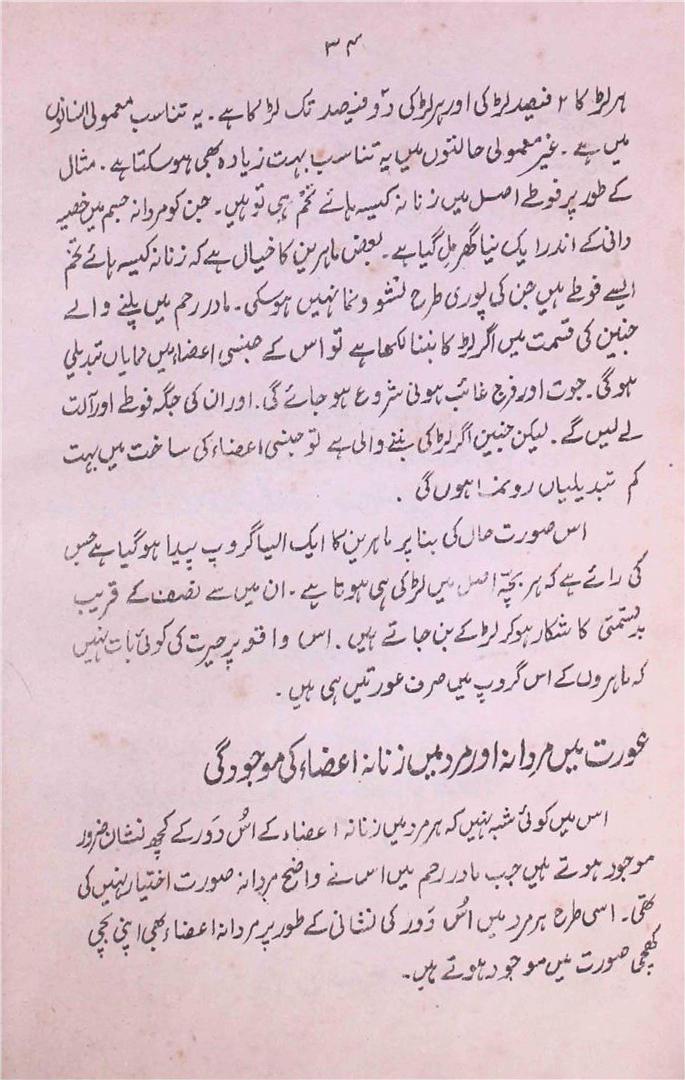 ۳۴
ہر لڑکا ۲ فیصد لڑکی اور ہر لڑکی دو فیصد تک لڑکا ہے۔ یہ تناسب معمولی انسانوں
میں ہے۔ غیر معمولی حالتوں میں یہ تناسب بہت زیادہ بھی ہو سکتا ہے۔ مثال
کے طور پر فوطے اصل میں زنانہ کیسہ ہائے تخم ہی تو ہیں۔ جن کو مردانہ جسم میں خصیہ
دانی کے اندر ایک نیا گھر مل گیا ہے۔ بعض ماہرین کا خیال ہے کہ زنانہ کیسہ ہائے تخم
ایسے فوطے ہیں جن کی پوری طرح نشوونما نہیں ہو سکی۔ مادر رحم میں پلنے والے
جنین کی قسمت میں اگر لڑکا بننا لکھا ہے تو اس کے جنسی اعضاء میں نمایاں تبدیلی
ہوگی۔ جوت اور فرج غائب ہونی شروع ہو جائے گی۔ اور ان کی جگہ فوطے اور آلت
لے لیں گے۔ لیکن جنین اگر لڑکی بننے والی ہے تو جنسی اعضاء کی ساخت میں بہت
کم تبدیلیاں رونما ہوں گی۔
اس صورت حال کی بنا پر ماہرین کا ایک ایسا گروپ پیدا ہو گیا ہے جس
کی رائے ہے کہ ہر بچہ اصل میں لڑکی ہی ہوتا ہے۔ ان میں سے نصف کے قریب
بدقسمتی کا شکار ہو کر لڑکے بن جاتے ہیں۔ اس واقعہ پر حیرت کی کوئی بات نہیں
کہ ماہروں کے اس گروپ میں صرف عورتیں ہی ہیں۔
عورت میں مردانہ اور مرد میں زنانہ اعضاء کی موجودگی
اس میں کوئی شبہ نہیں کہ ہر مرد میں زنانہ اعضاء کے اُس دَور کے کچھ نشان ضرور
موجود ہوتے ہیں جب مادر رحم میں اس نے واضح مردانہ صورت اختیار نہیں کی
تھی۔ اسی طرح ہر مرد میں اُس دَور کی نشانی کے طور پر مردانہ اعضاء بھی اپنی بچی
کھچی صورت میں موجود ہوتے ہیں۔